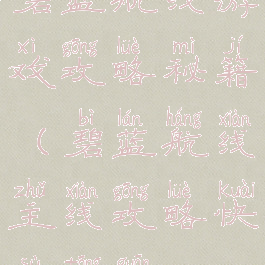 碧蓝航线游
xì gōng lüè mì jí
戏攻略秘籍
bì lán háng xiàn
（碧蓝航线
zhǔ xiàn gōng lüè kuài
主线攻略快